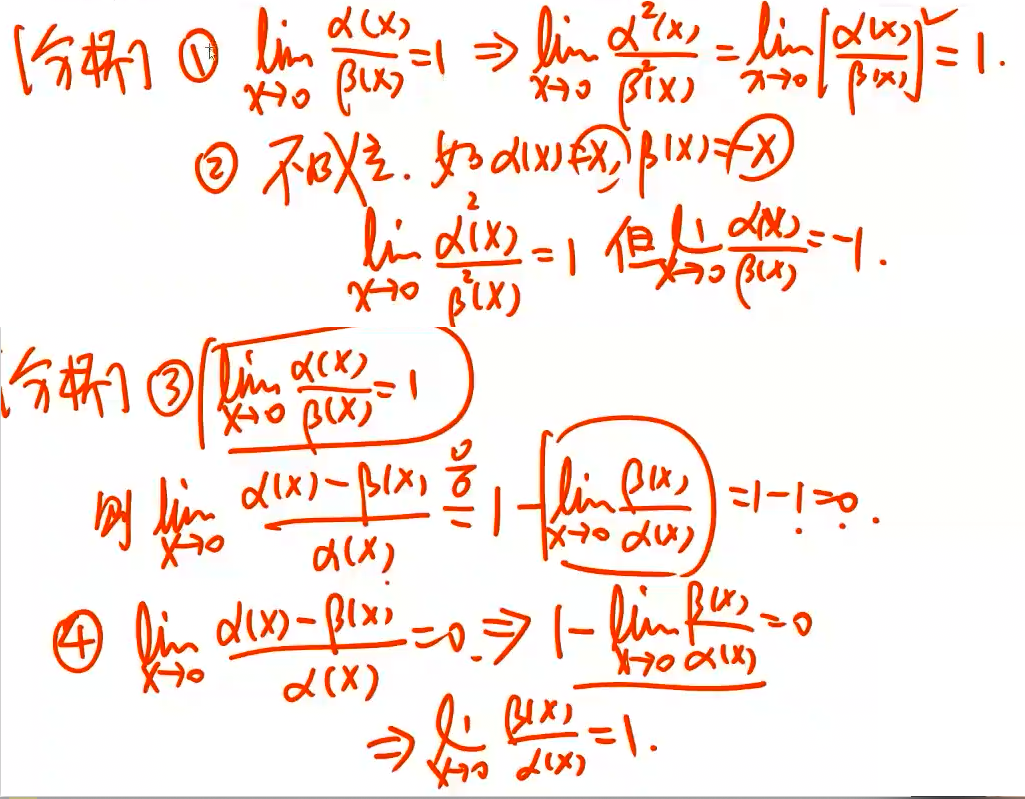 [分析] ① lim x→0 α(x)/β(x) = 1 ⇒ lim x→0 α²(x)/β²(x) = lim x→0 [α(x)/β(x)]² = 1.
② 不成立. 如 α(x)=x, β(x)=-x
lim x→0 α²(x)/β²(x) = 1 但 lim x→0 α(x)/β(x) = -1.
[分析] ③ lim x→0 α(x)/β(x) = 1
则 lim x→0 (α(x)-β(x))/α(x) 0/0 = 1 - lim x→0 β(x)/α(x) = 1-1=0.
④ lim x→0 (α(x)-β(x))/α(x) = 0. ⇒ 1 - lim x→0 β(x)/α(x) = 0
⇒ lim x→0 β(x)/α(x) = 1.